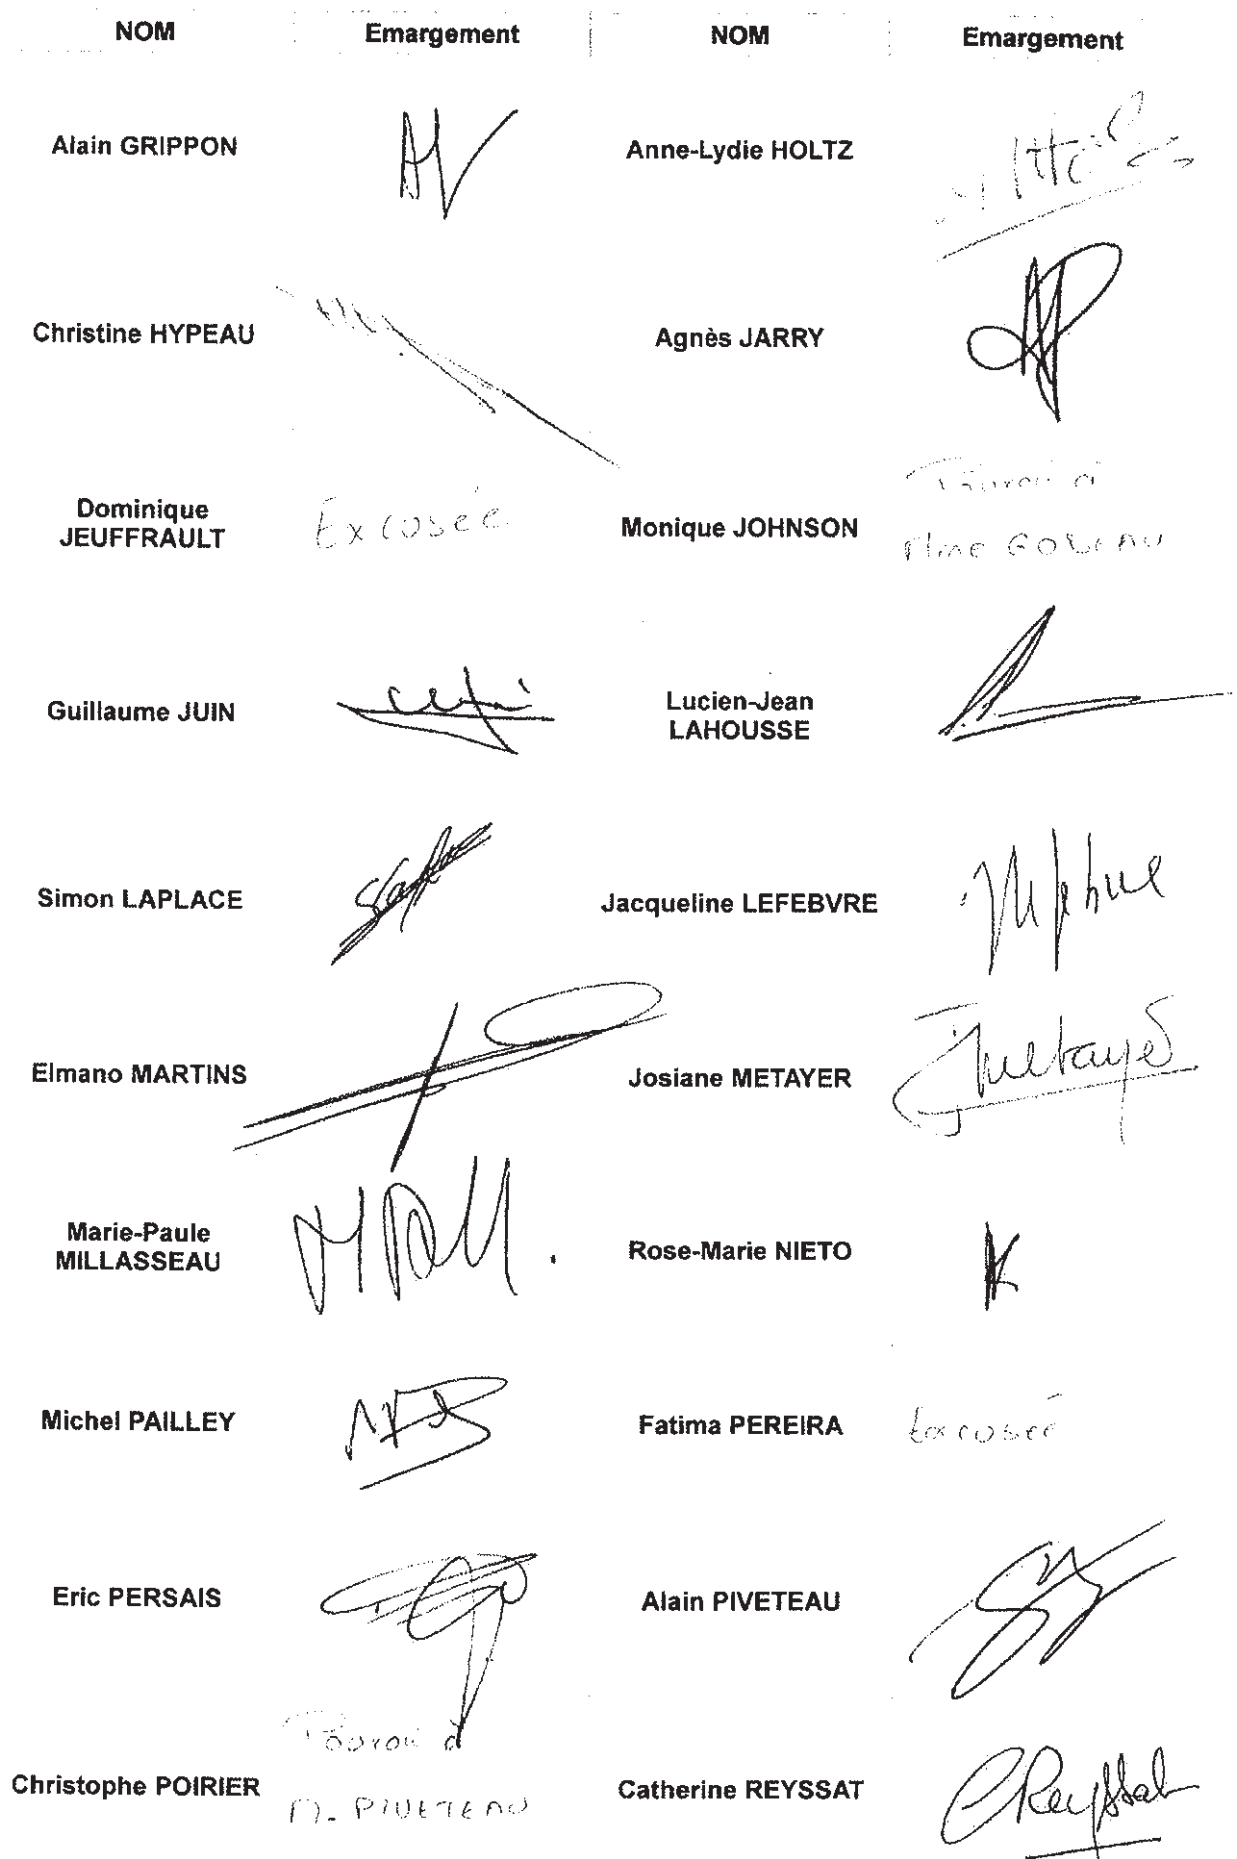 NOM Emargement NOM Emargement
Alain GRIPPON Anne-Lydie HOLTZ
Christine HYPEAU Agnès JARRY
Dominique
JEUFFRAULT
Excusée
Monique JOHNSON
Pouvoir à
Mme GOBEAU
Guillaume JUIN
Lucien-Jean
LAHOUSSE
Simon LAPLACE Jacqueline LEFEBVRE
Elmano MARTINS Josiane METAYER
JMetayer
Marie-Paule
MILLASSEAU
Rose-Marie NIETO
Michel PAILLEY Fatima PEREIRA Excusée
Eric PERSAIS Alain PIVETEAU
Christophe POIRIER
Pouvoir à
M. PIVETEAU
Catherine REYSSAT
CReyssat